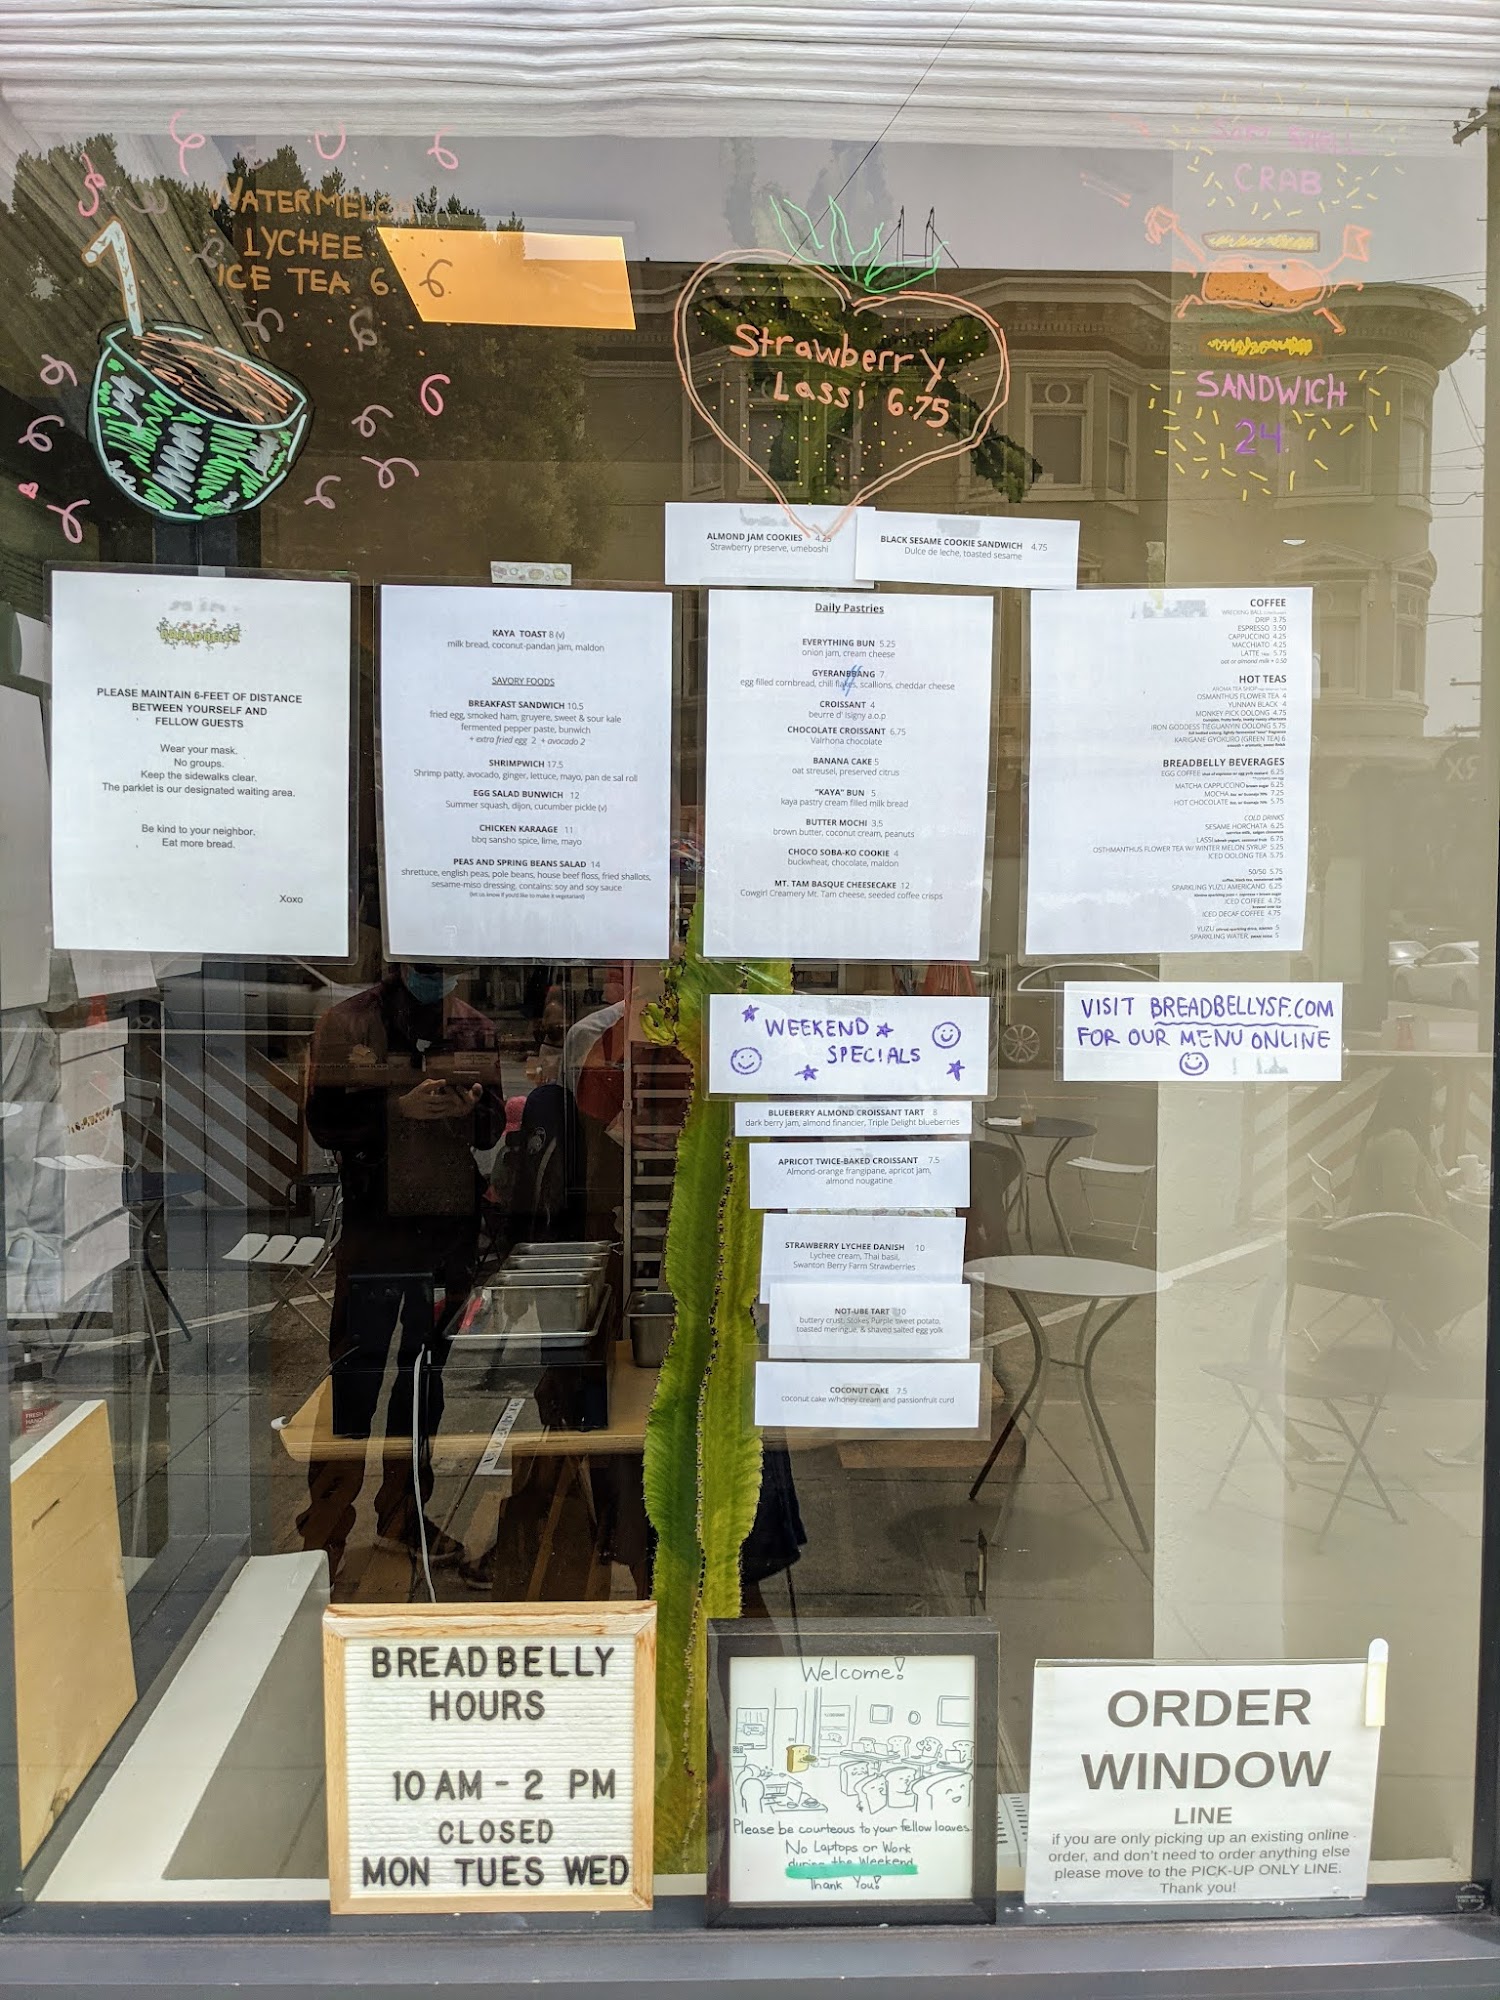 WATERMELON
LYCHEE
ICE TEA 6.
Strawberry
Lassi 6.75
SHELL
CRAB
SANDWICH
24
ALMOND JAM COOKIES 4.25
Strawberry preserve, umeboshi
BLACK SESAME COOKIE SANDWICH 4.75
Dulce de leche, toasted sesame
BREADBELLY
PLEASE MAINTAIN 6-FEET OF DISTANCE
BETWEEN YOURSELF AND
FELLOW GUESTS
Wear your mask.
No groups.
Keep the sidewalks clear.
The parklet is our designated waiting area.
Be kind to your neighbor.
Eat more bread.
Xoxo
KAYA TOAST 8 (v)
milk bread, coconut-pandan jam, maldon
SAVORY FOODS
BREAKFAST SANDWICH 10.5
fried egg, smoked ham, gruyere, sweet & sour kale
fermented pepper paste, bunwich
+ extra fried egg 2 + avocado 2
SHRIMPWICH 17.5
Shrimp patty, avocado, ginger, lettuce, mayo, pan de sal roll
EGG SALAD BUNWICH 12
Summer squash, dijon, cucumber pickle (v)
CHICKEN KARAAGE 11
bbq sansho spice, lime, mayo
PEAS AND SPRING BEANS SALAD 14
shrettuce, english peas, pole beans, house beef floss, fried shallots,
sesame-miso dressing, contains: soy and soy sauce
(let us know if you'd like to make it vegetarian)
Daily Pastries
EVERYTHING BUN 5.25
onion jam, cream cheese
GYERANBBANG 7
egg filled cornbread, chili flakes, scallions, cheddar cheese
CROISSANT 4
beurre d' isigny a.o.p
CHOCOLATE CROISSANT 6.75
Valrhona chocolate
BANANA CAKE 5
oat streusel, preserved citrus
"KAYA" BUN 5
kaya pastry cream filled milk bread
BUTTER MOCHI 3.5
brown butter, coconut cream, peanuts
CHOCO SOBA-KO COOKIE 4
buckwheat, chocolate, maldon
MT. TAM BASQUE CHEESECAKE 12
Cowgirl Creamery Mt. Tam cheese, seeded coffee crisps
COFFEE
WRECKING BALL
DRIP 3.75
ESPRESSO 3.50
CAPPUCCINO 4.25
MACCHIATO 4.25
LATTE 5.75
oat or almond milk + 0.50
HOT TEAS
AROMA TEA SHOP
OSMANTHUS FLOWER TEA 4
YUNNAN BLACK 4
MONKEY PICK OOLONG 4.75
IRON GODDESS TIEGUANYIN OOLONG 5.75
KARIGANE GYOKURO (GREEN TEA) 6
BREADBELLY BEVERAGES
EGG COFFEE 6.25
MATCHA CAPPUCCINO brown sugar 6.25
MOCHA 7.25
HOT CHOCOLATE 5.75
COLD DRINKS
SESAME HORCHATA 6.25
LASSI 6.75
OSTHMANTHUS FLOWER TEA W/ WINTER MELON SYRUP 5.25
ICED OOLONG TEA 5.75
50/50 5.75
SPARKLING YUZU AMERICANO 6.25
ICED COFFEE 4.75
ICED DECAF COFFEE 4.75
YUZU 5
SPARKLING WATER 5
WEEKEND
SPECIALS
VISIT BREADBELLYSF.COM
FOR OUR MENU ONLINE
BLUEBERRY ALMOND CROISSANT TART 8
dark berry jam, almond financier, Triple Delight blueberries
APRICOT TWICE-BAKED CROISSANT 7.5
Almond-orange frangipane, apricot jam,
almond nougatine
STRAWBERRY LYCHEE DANISH 10
Lychee cream, Thai basil,
Swanton Berry Farm Strawberries
NOT-UBE TART 10
buttery crust, Stokes Purple sweet potato,
toasted meringue, & shaved salted egg yolk
COCONUT CAKE 7.5
coconut cake w/honey cream and passionfruit curd
BREADBELLY
HOURS
10 AM - 2 PM
CLOSED
MON TUES WED
Welcome!
Please be courteous to your fellow loaves.
No Laptops or Work
during the Weekend
Thank You!
ORDER
WINDOW
LINE
if you are only picking up an existing online
order, and don't need to order anything else
please move to the PICK-UP ONLY LINE.
Thank you!